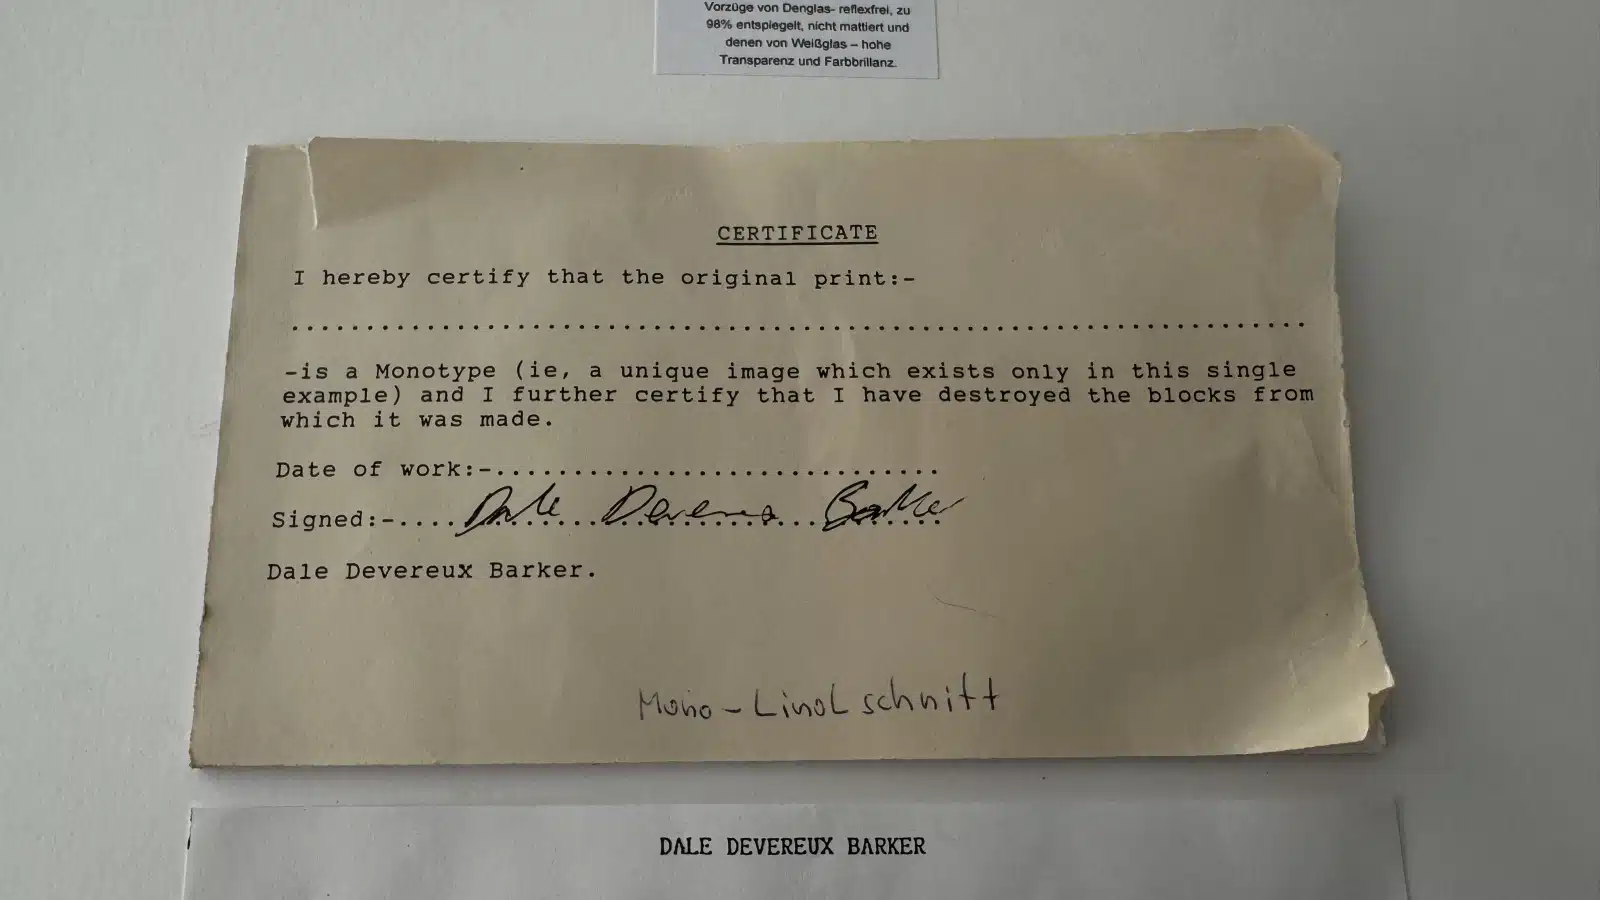 Vorzüge von Denglas- reflexfrei, zu
98% entspiegelt, nicht mattiert und
denen von Weißglas – hohe
Transparenz und Farbbrillanz.
CERTIFICATE
I hereby certify that the original print:-
....................................................................
-is a Monotype (ie, a unique image which exists only in this single
example) and I further certify that I have destroyed the blocks from
which it was made.
Date of work:-.............................
Signed:-.... Dale Devereux Barker
Dale Devereux Barker.
Mono-Linolschnitt
DALE DEVEREUX BARKER